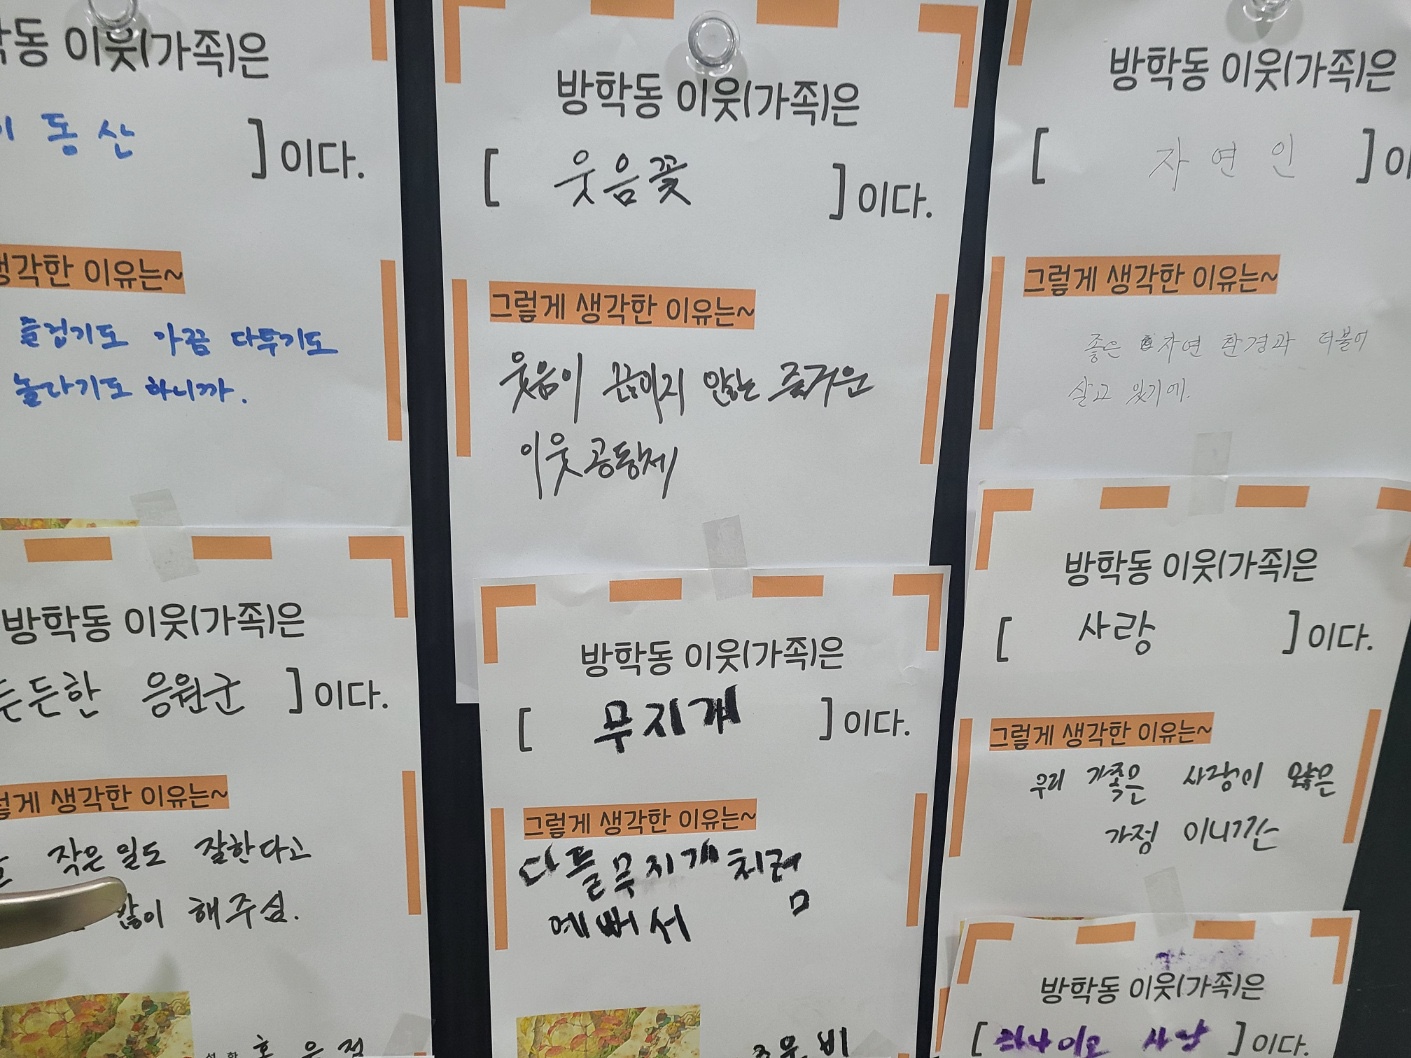 이웃(가족)은
동산 ]이다.
생각한 이유는~
즐겁기도 가끔 다투기도
놀라기도 하니까.
방학동 이웃(가족)은
[ 웃음꽃 ]이다.
그렇게 생각한 이유는~
웃음이 끊이지 않는 즐거운
이웃공동체
방학동 이웃(가족)은
[ 자연인 ]이
그렇게 생각한 이유는~
좋은 자연 환경과 더불어
살고 있기에.
방학동 이웃(가족)은
든든한 응원군 ]이다.
생각한 이유는~
작은일도 잘한다고
많이 해주심.
방학동 이웃(가족)은
[ 무지개 ]이다.
그렇게 생각한 이유는~
다들무지개처럼
예뻐서
방학동 이웃(가족)은
[ 사랑 ]이다.
그렇게 생각한 이유는~
우리 가족은 사랑이 많은
가정 이니깐
방학동 이웃(가족)은
[ ]이다.